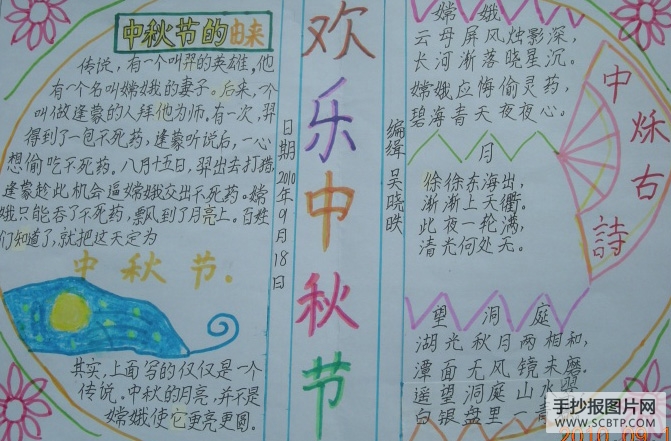 中秋节的由来
传说,有一个叫羿的英雄。他
有一个名叫嫦娥的妻子。后来,一个
叫做逢蒙的人拜他为师。有一次,羿
得到了一包不死药,逢蒙听说后,一心
想偷吃不死药。八月十五日,羿出去打猎,
逢蒙趁此机会逼嫦娥交出不死药。嫦
娥只能吞了不死药,飘到了月亮上。百姓
们知道了,就把这天定为
中秋节.
其实,上面写的仅仅是一个
传说。中秋的月亮,并不是
嫦娥使它更亮更圆。
日期2010年9月18日
欢乐中秋节
编缉 吴晓
嫦娥
云母屏风烛影深,
长河渐落晓星沉。
嫦娥应悔偷灵药,
碧海青天夜夜心。
月
徐徐东海出,
渐渐上天衢。
此夜一轮满,
清光何处无。
望洞庭
湖光秋月两相和,
潭面无风镜未磨。
遥望洞庭山水
白银盘里一青
中秌古詩
手抄报图片网
WWW.SCBTP.COM